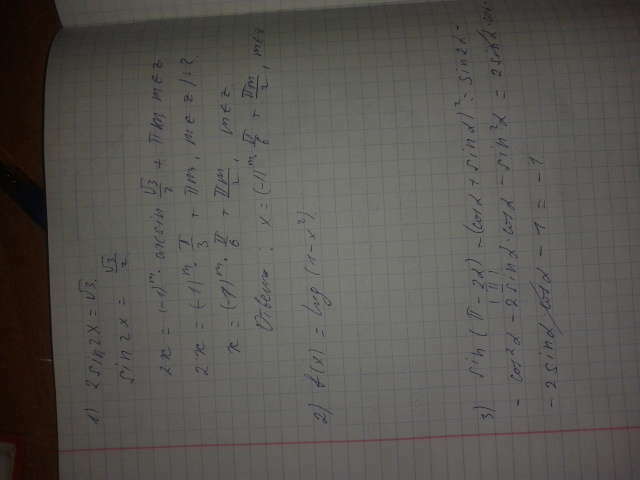 1) 2 sin 2x = √3
sin 2x = √3/2
2x = (-1)^m · arcsin √3/2 + πm, m∈z
2x = (-1)^m · π/3 + πm, m∈z /:2
x = (-1)^m · π/6 + πm/2, m∈z
Ответ: x = (-1)^m · π/6 + πm/2, m∈z
2) f(x) = lg (1-x²)
3) sin (π - 2α) - (cosα + sinα)² = sin2α -
- cos²α - 2 sinα · cosα - sin²α = 2 sinα cosα
- 2 sinα cosα - 1 = -1